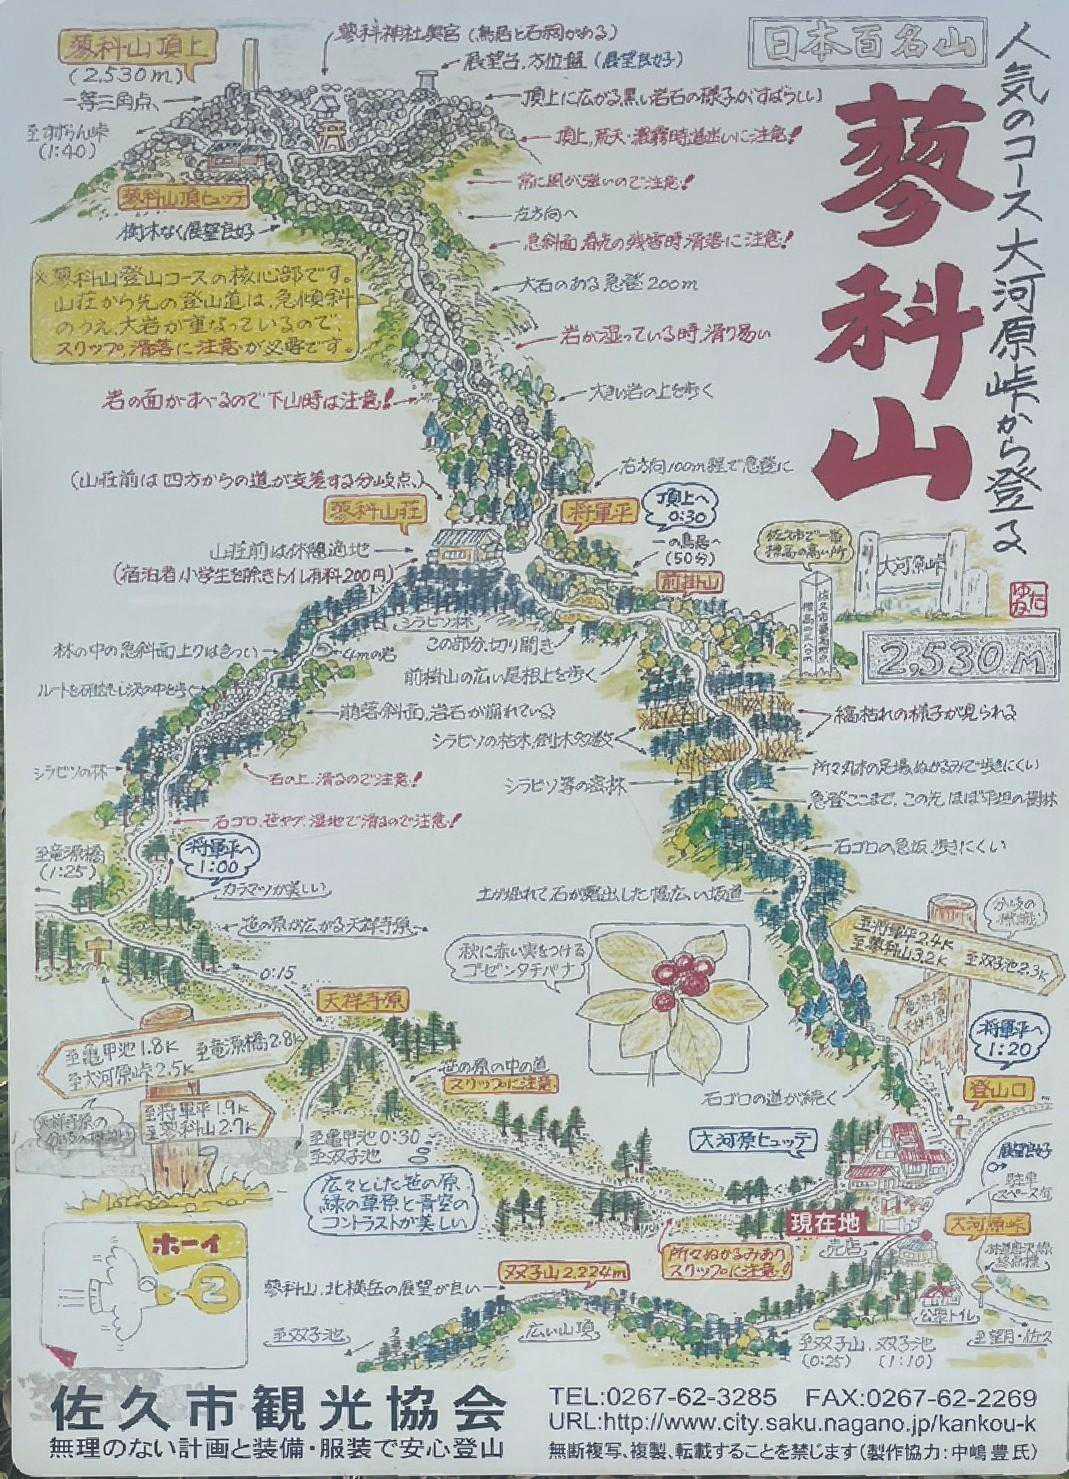 日本百名山
人気のコース大河原峠から登る
蓼科山
2,530M
蓼科山頂上
(2,530m)
一等三角点
至すずらん峠
(1:40)
蓼科神社奥宮(鳥居と石祠がある)
展望台、方位盤(展望良好)
頂上に広がる黒い岩石の様子がすばらしい
頂上、荒天・濃霧時道迷いに注意!
常に風が強いので注意!
左方向へ
急斜面、春先の残雪時、滑落に注意!
大石のある急登200m
岩が湿っている時、滑り易い
大きい岩の上を歩く
右方向100m程で急登に
蓼科山頂ヒュッテ
樹木なく展望良好
※蓼科山登山コースの核心部です。
山荘から先の登山道は、急傾斜
のうえ、大岩が重なっているので、
スリップ、滑落に注意が必要です。
岩の面がすべるので下山時は注意!
(山荘前は四方からの道が交差する分岐点)
蓼科山荘
将軍平
頂上へ
0:30
一の鳥居へ
(50分)
前掛山
山荘前は休憩適地
(宿泊者、小学生を除きトイレ有料200円)
佐久市で一番
標高の高い所
大河原峠
シラビソ林
4mの岩
この部分、切り開き
前掛山の広い尾根上を歩く
林の中の急斜面上りはきつい
崩落斜面、岩石が崩れている
シラビソの林
石の上、滑るので注意!
石ゴロ、笹ヤブ、湿地で滑るので注意!
縞枯れの様子が見られる
シラビソの枯木、倒木多数
シラビソ等の密林
所々丸木の足場、ぬかるみで歩きにくい
急登ここまで、この先、ほぼ平坦の樹林
石ゴロの急坂、歩きにくい
土が掘れて石が露出した幅広い坂道
至竜源橋
(1:25)
将軍平へ
1:00
カラマツが美しい
笹の原が広がる天祥寺原
0:15
天祥寺原
秋に赤い実をつける
ゴゼンタチバナ
至将軍平2.4K
至蓼科山3.2K
至双子池2.3K
竜源橋
天祥寺原
将軍平へ
1:20
登山口
石ゴロの道が続く
至亀甲池1.8K
至竜源橋2.8K
至大河原峠2.5K
至将軍平1.9K
至蓼科山2.7K
笹の原の中の道
スリップに注意
至亀甲池0:30
至双子池
広々とした笹の原
緑の草原と青空の
コントラストが美しい
大河原ヒュッテ
展望良好
駐車
スペース有
現在地
売店
大河原峠
公衆トイレ
至望月・佐久
所々ぬかるみあり
スリップに注意!!
双子山2,224m
蓼科山、北横岳の展望が良い
至双子池
広い山頂
至双子山、双子池
(0:25) (1:10)
ホーイ
佐久市観光協会
無理のない計画と装備・服装で安心登山
TEL:0267-62-3285 FAX:0267-62-2269
URL:http://www.city.saku.nagano.jp/kankou-k
無断複写、複製、転載することを禁じます(製作協力:中嶋 豊 氏)